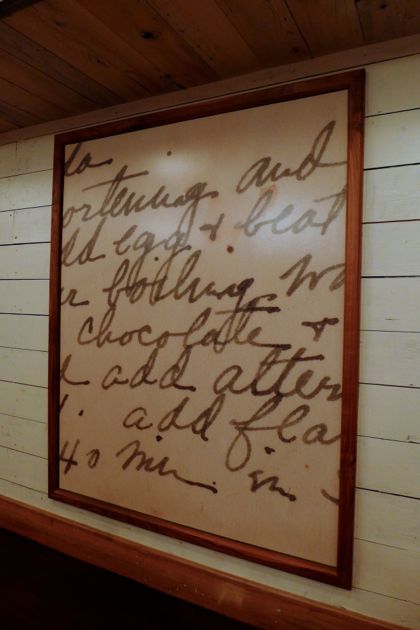 da
ortening and
dd egg + beat
r boiling wa
chocolate +
d add alter
d. add fla
40 min. in